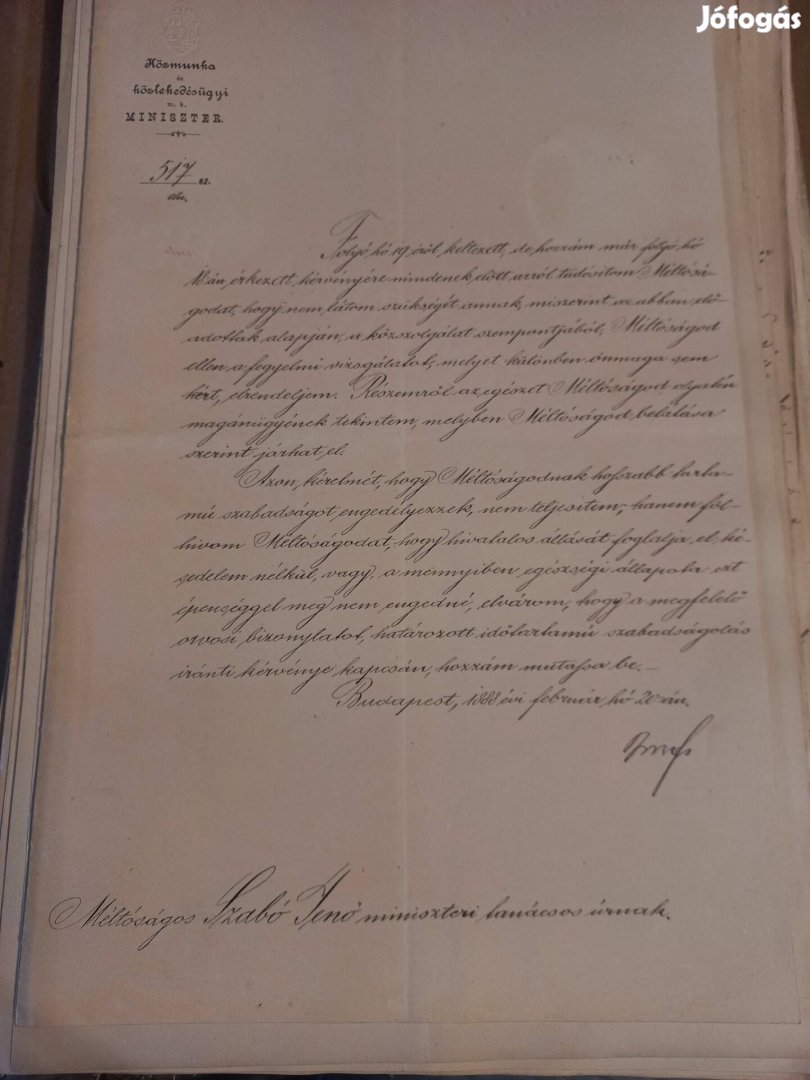 Jófogás
Közmunka
és
közlekedésügyi
m. k.
MINISZTER.
517 82.
eln.
Folyó hó 19 éről keltezett, de hozzám már folyó hó
18 án érkezett kérvényére mindenek előtt arról tudósítom Méltósá-
godat, hogy nem látom szükségét annak, miszerint az abban elő-
adottak alapján, a közszolgálat szempontjából, Méltóságod
ellen a fegyelmi vizsgálatot, melyet különben önmaga sem
kért, elrendeljem. Részemről az egészet Méltóságod olyatén
magánügyének tekintem, melyben Méltóságod belátása
szerint járhat el.
Azon kérelmét, hogy Méltóságodnak hosszabb tarta-
mú szabadságot engedélyezzek, nem teljesitem; hanem föl-
hivom Méltóságodat, hogy hivatalos állását foglalja el ké-
sedelem nélkül, vagy, a mennyiben egészségi állapota ezt
épenséggel meg nem engedné, elvárom, hogy a megfelelő
orvosi bizonylatot, határozott időtartamú szabadságolás
iránti kérvénye kapcsán, hozzám mutassa be.-
Budapest, 1888 évi február hó 20-án.
Méltóságos Szabó Jenő miniszteri tanácsos úrnak.